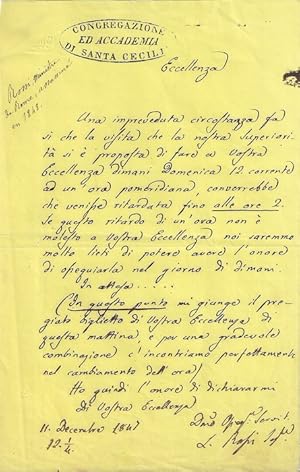 CONGREGAZIONE
ED ACCADEMIA
DI SANTA CECILI
Eccellenza
Rossi ministre
de Rome assassiné
en 1848.
Una impreveduta circostanza fa
sì che la visita che la nostra Superiori-
tà si è proposta di fare a Vostra
Eccellenza dimani Domenica 12. corrente
ad un'ora pomeridiana, converrebbe
che venisse ritardata fino alle ore 2.
Se questo ritardo di un'ora non è
molesto a Vostra Eccellenza noi saremmo
molto lieti di potere avere l'onore
di ossequiarla nel giorno di dimani.
In attesa .....
(In questo punto mi giunge il pre-
giato biglietto di Vostra Eccellenza di
questa mattina, e per una gradevole
combinazione c'incontriamo perfettamente
nel cambiamento dell'ora)
Ho quindi l'onore di dichiararmi
Di Vostra Eccellenza
11. Decembre 1847
12. 1/4
L. Rossi